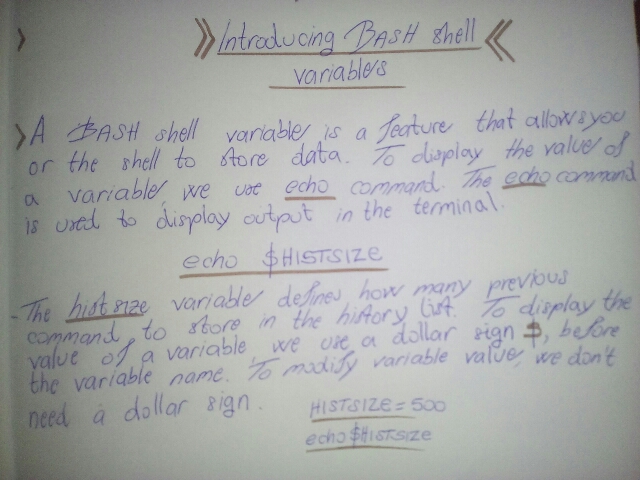 > >> Introducing BASH shell <<
variables
> A BASH shell variable is a feature that allows you
or the shell to store data. To display the value of
a variable, we use echo command. The echo command
is used to display output in the terminal.
echo $HISTSIZE
- The hist size variable defines how many previous
command to store in the history list. To display the
value of a variable, we use a dollar sign $, before
the variable name. To modify variable value, we don't
need a dollar sign.
HISTSIZE = 500
echo $HISTSIZE